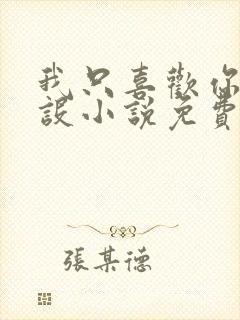 我只喜歡你
設小說免費
張某德